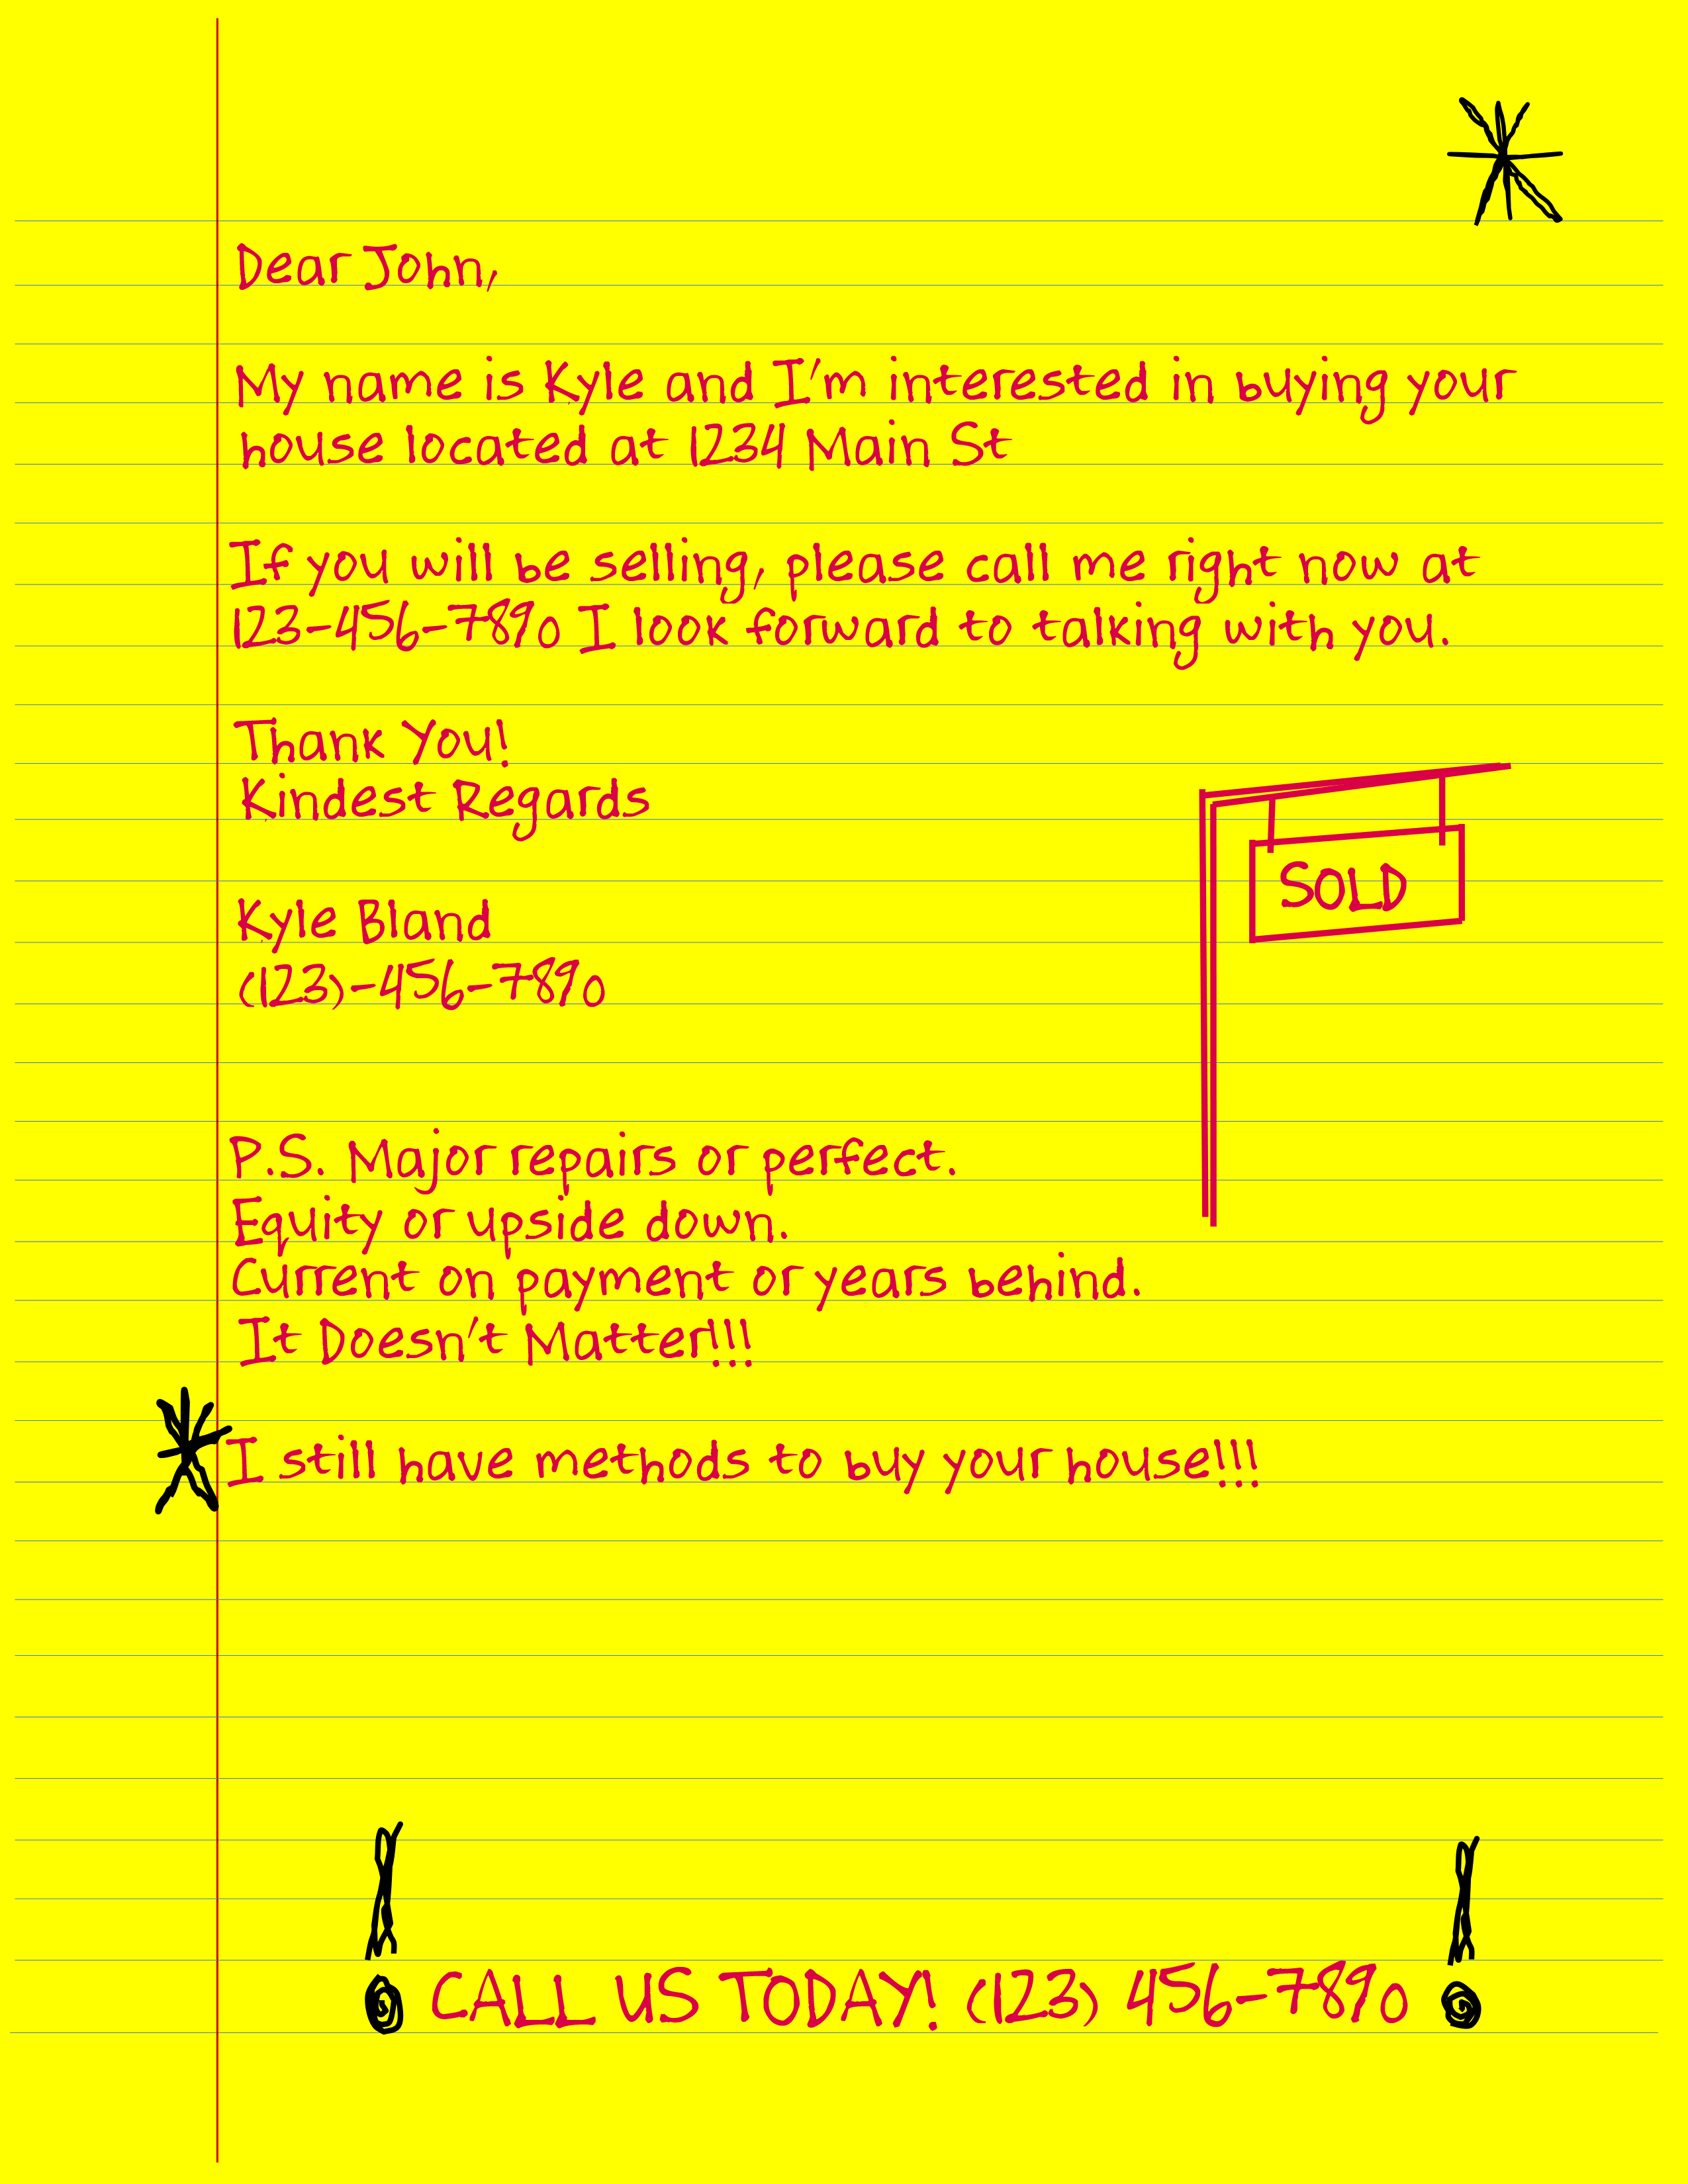 Dear John,
My name is Kyle and I'm interested in buying your
house located at 1234 Main St
If you will be selling, please call me right now at
123-456-7890 I look forward to talking with you.
Thank You!
Kindest Regards
SOLD
Kyle Bland
(123)-456-7890
P.S. Major repairs or perfect.
Equity or upside down.
Current on payment or years behind.
It Doesn't Matter!!!
* I still have methods to buy your house!!!
! CALL US TODAY! (123) 456-7890 !